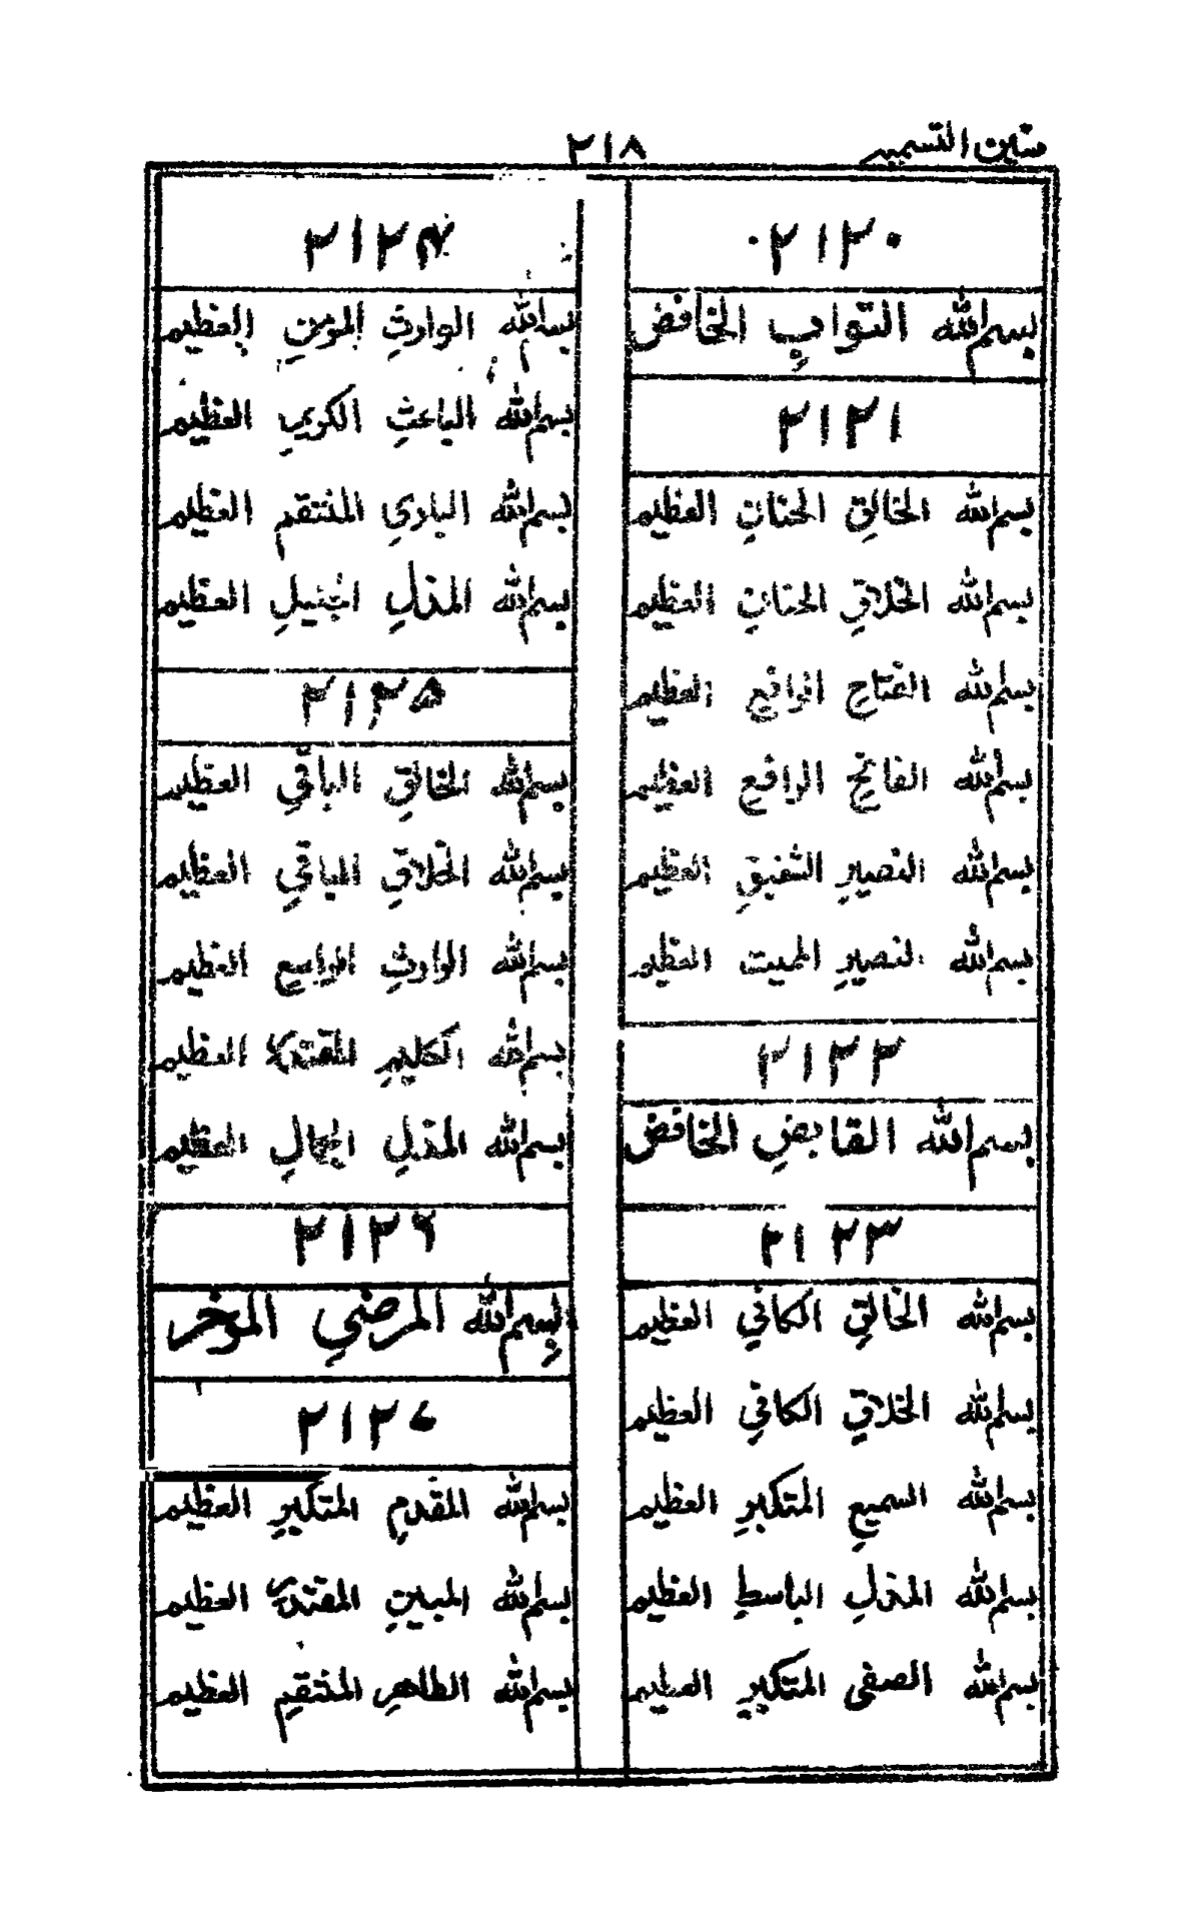 ٢١٨
٢١٢٠
بسم الله التوابِ الخافض
٢١٢١
بسم الله الخالقِ الحنانِ العظيم
بسم الله الخلاقِ الحنانِ العظيم
بسم الله الفتاحِ الرافعِ العظيم
بسم الله الفاتحِ الرافعِ العظيم
بسم الله النصيرِ الشفيقِ العظيم
بسم الله النصيرِ المميت العظيم
٢١٢٢
بسم الله القابضِ الخافض
٢١٢٣
بسم الله الخالقِ الكافي العظيم
بسم الله الخلاقِ الكافي العظيم
بسم الله السميعِ المتكبرِ العظيم
بسم الله المذلِ الباسطِ العظيم
بسم الله الصفى المتكبرِ العظيم
٢١٢٤
بسم الله الوارثِ المومنِ العظيم
بسم الله الباعثِ الكريمِ العظيم
بسم الله الباریِ المنتقم العظيم
بسم الله المذلِ العظيم
٢١٢٥
بسم الله الخالقِ الباقيِ العظيم
بسم الله الخلاقِ الباقيِ العظيم
بسم الله الوارثِ الواسعِ العظيم
بسم الله الكليمِ المقتدر العظيم
بسم الله المذلِ الجمالِ العظيم
٢١٢٦
بسم الله المرضيِ الموخر
٢١٢٧
بسم الله المقدمِ المتكبرِ العظيم
بسم الله المبينِ المقتدر العظيم
بسم الله الطاهرِ المنتقمِ العظيم